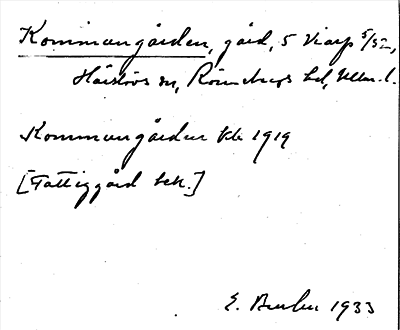 Kommungården, gård, 5 Viarp 5/32,
Härslövs sn, Rönnebergs hd, Mlm. l.
Kommungården Kb 1919
[Fattiggård bek.]
E. 1933